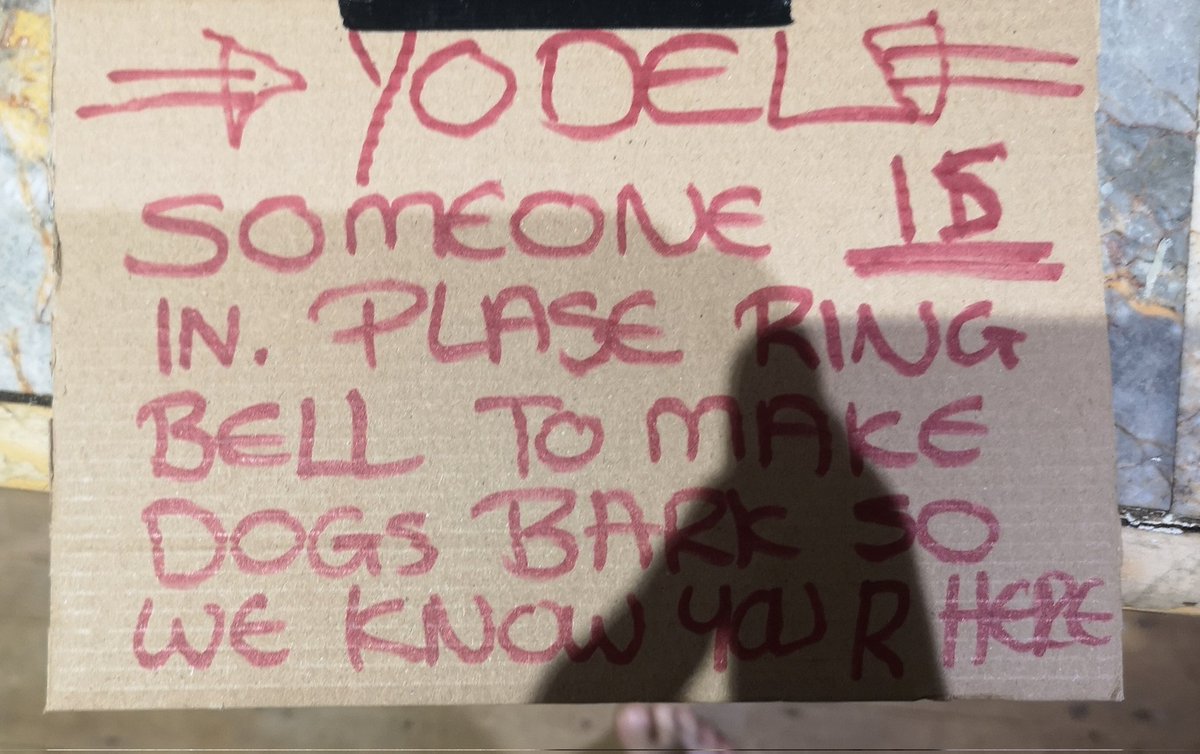 YODEL
SOMEONE IS
IN. PLASE RING
BELL TO MAKE
DOGS BARK SO
WE KNOW YOU R HERE